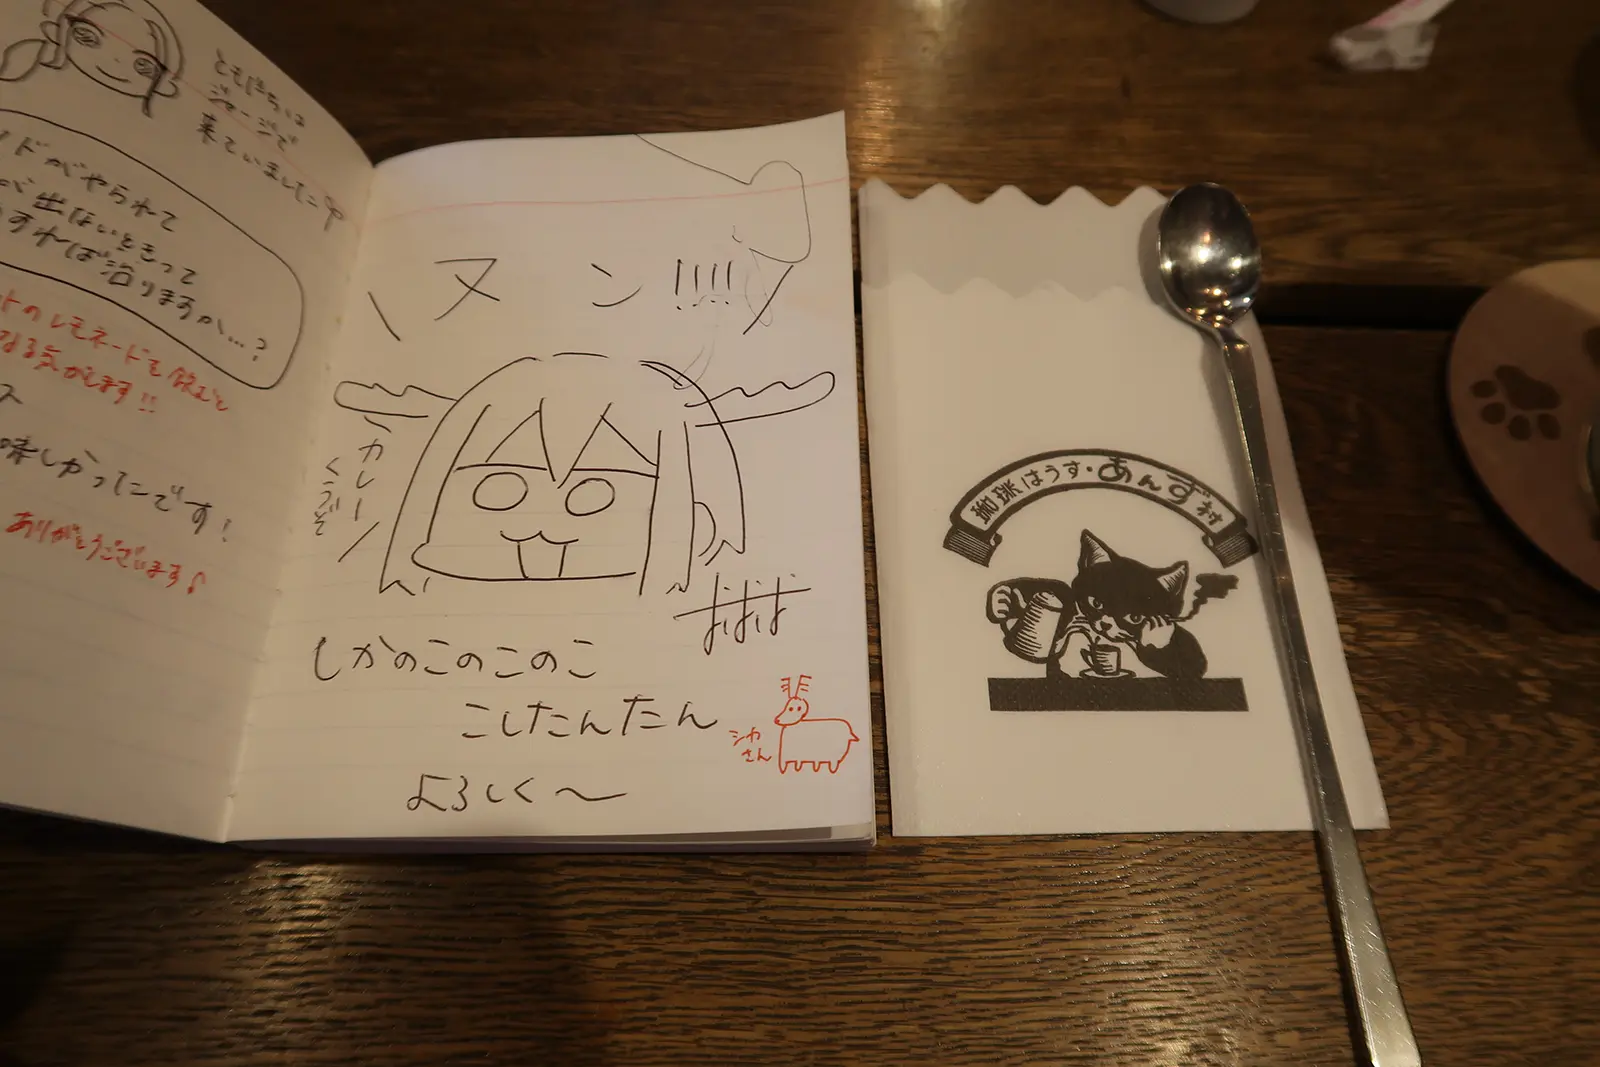 ともだちは
ジャージで
来ていました
ドがやられて
が出ないときって
すれば治りますか…?
トのレモネードを飲むと
なる気がします!!
ス
味しかったです!
ありがとうございます♪
ヌン!!!!
カレー
くうぞ
ばばば
しかのこのこのこ
こしたんたん
よろしく〜
シカ
さん
珈琲はうす・あんず村